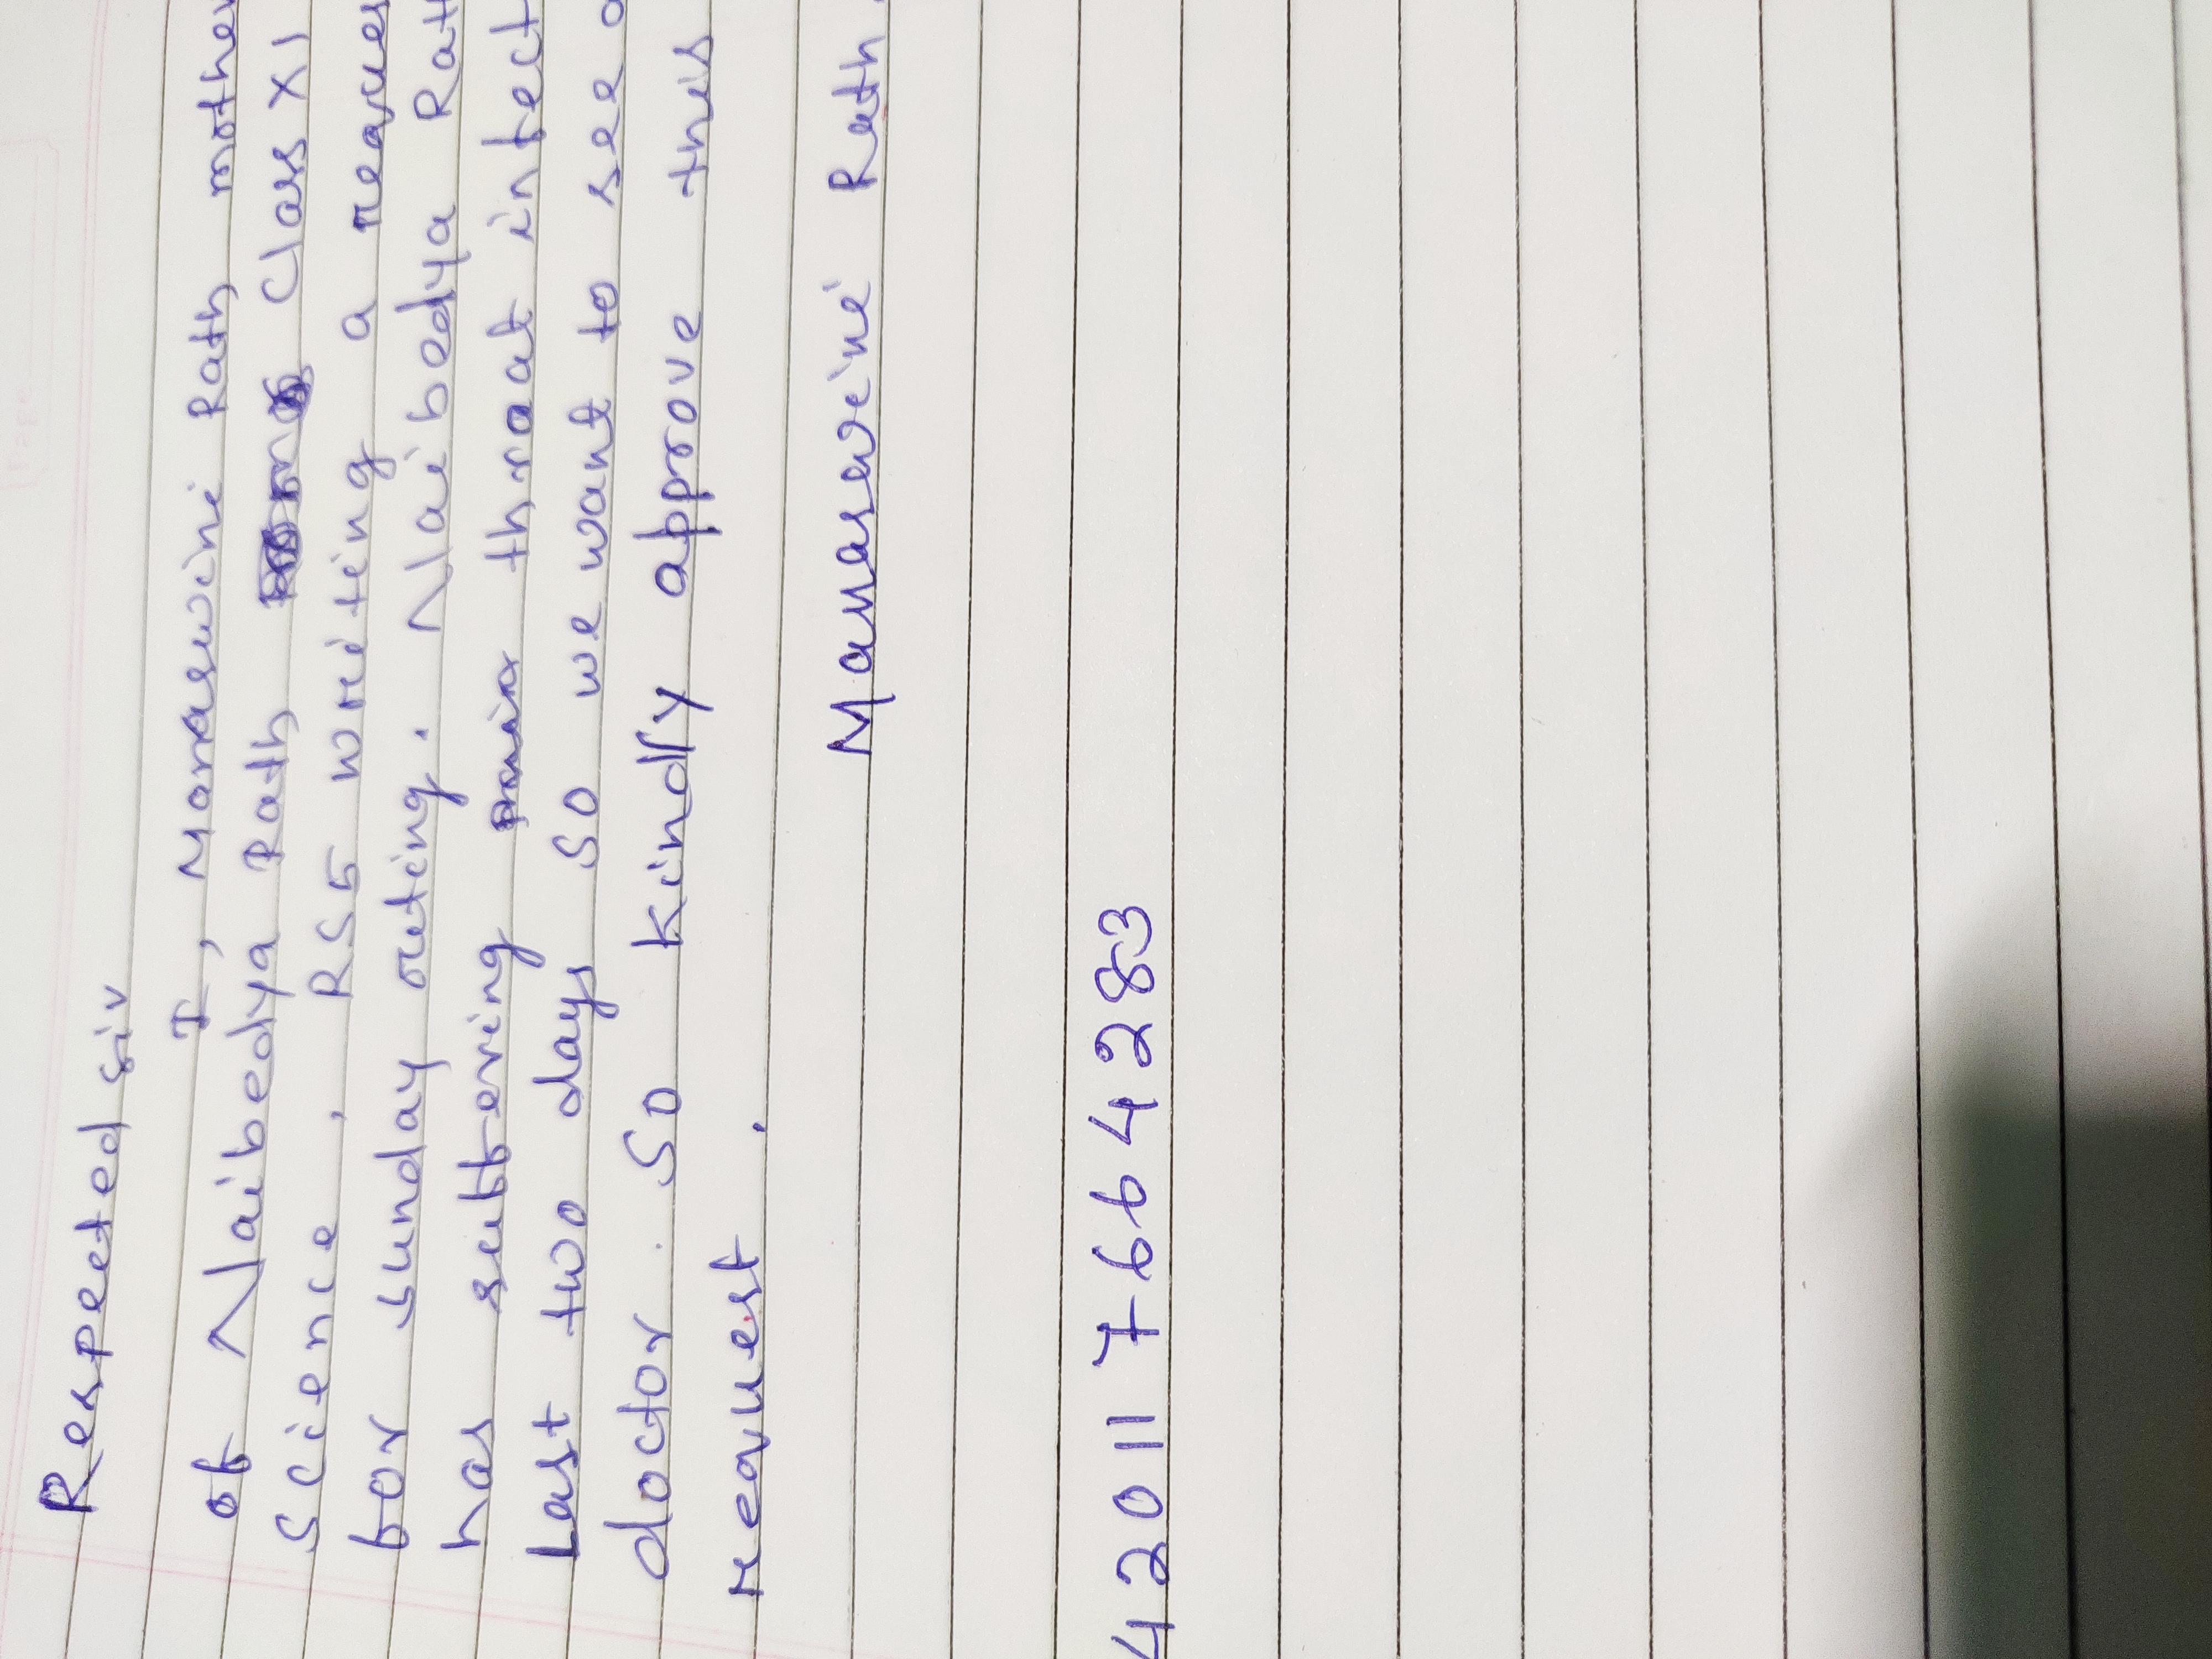 Respected sir
I, Manaswini Rath, mother
of Naibedya Rath, Class XI
science, RS5 writing a reques
for sunday outing. Naibedya Rath
has suffering throat infect
Last two days so we want to see a
doctor. So kindly approve this
request.
Manaswini Rath.
420117664283